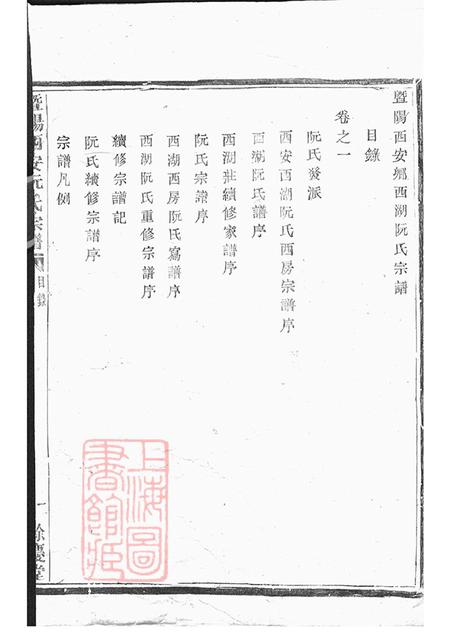 暨陽西安鄉西湖阮氏宗譜
目錄
卷之一
阮氏發派
西安西湖阮氏西房宗譜序
西湖阮氏譜序
西湖莊續修家譜序
阮氏宗譜序
西湖西房阮氏寫譜序
西湖阮氏重修宗譜序
續修宗譜記
阮氏續修宗譜序
宗譜凡例
暨陽西安阮氏宗譜
目錄
一
餘慶堂
上海圖書館藏